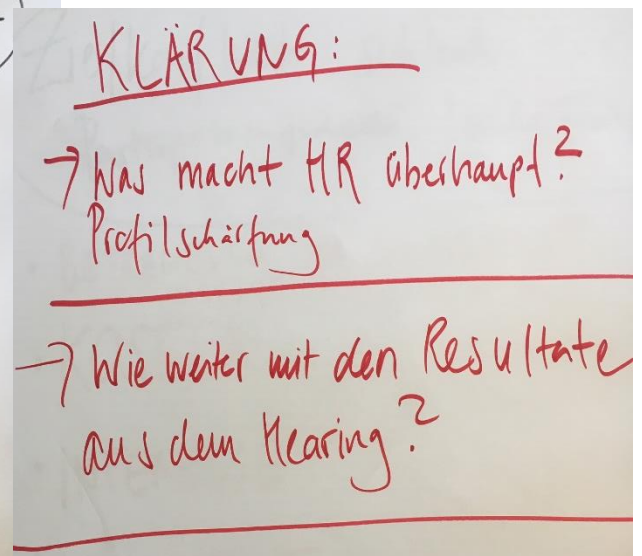 KLÄRUNG:
→ Was macht HR überhaupt?
Profilschärfung
→ Wie weiter mit den Resultate
aus dem Hearing?